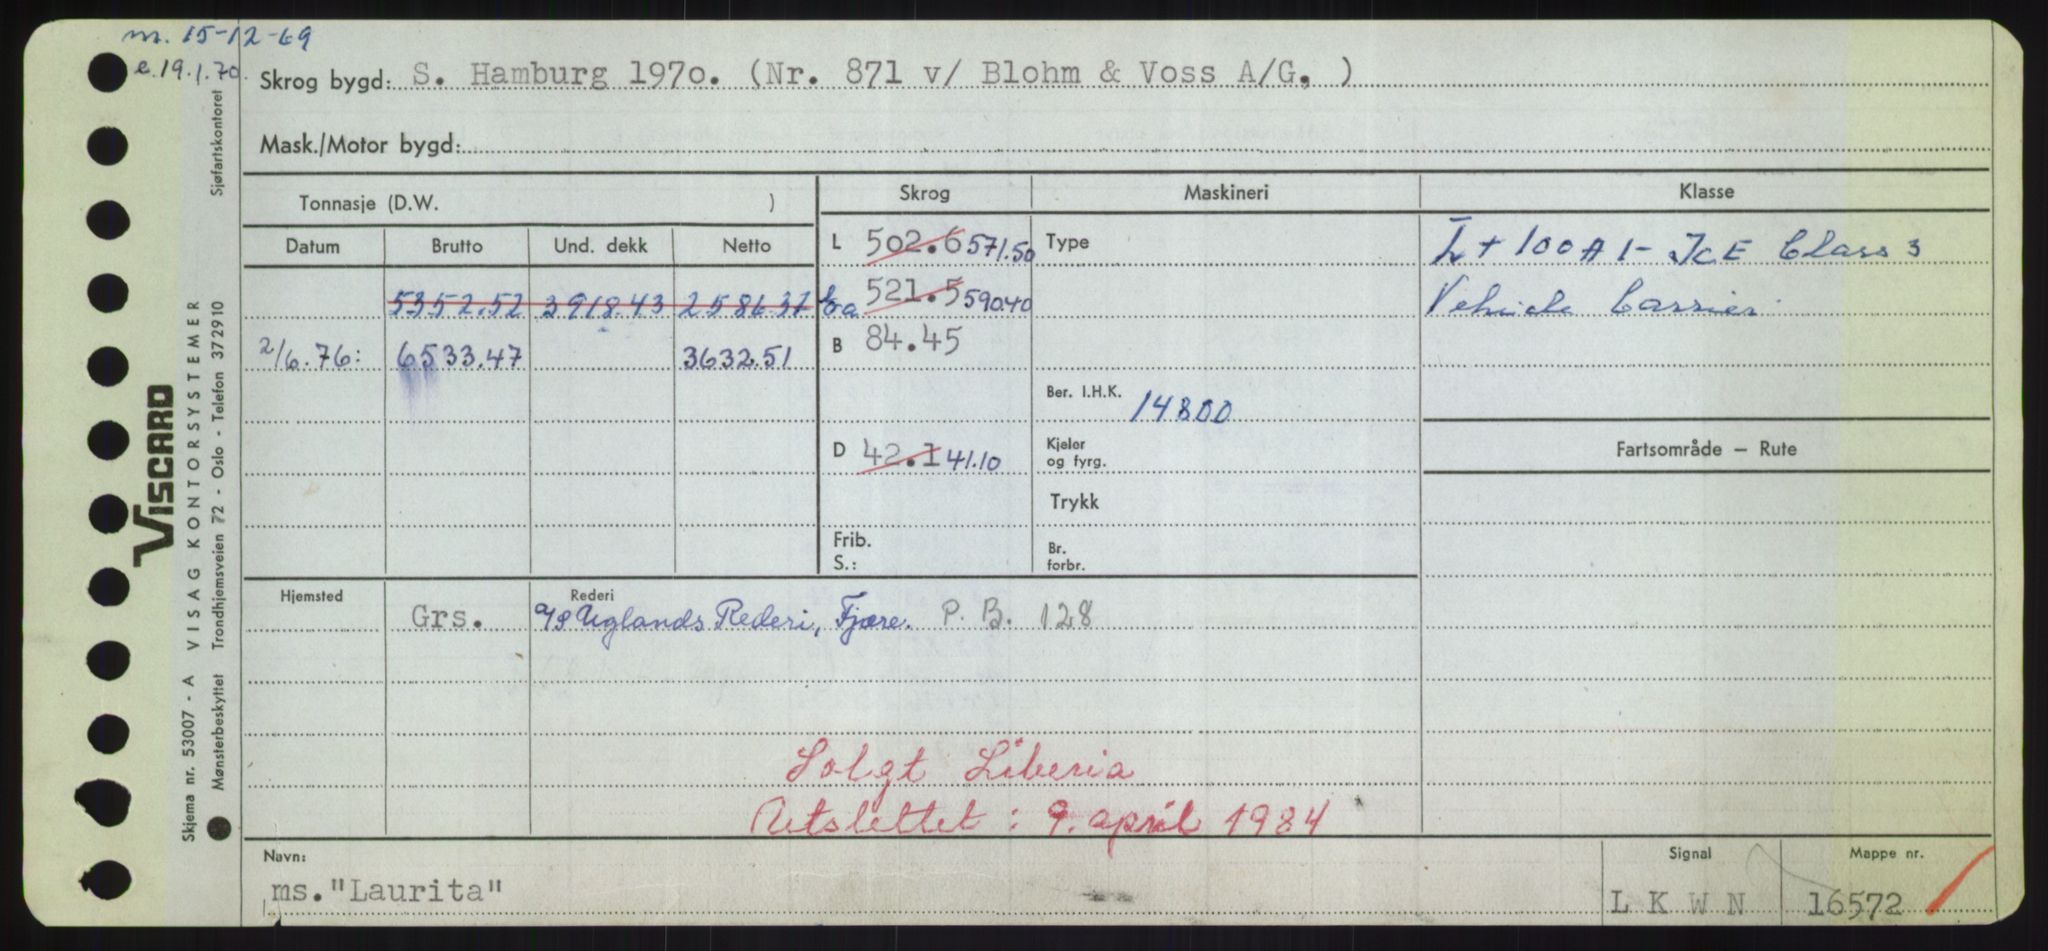 m. 15-12-69
e. 19.1.70.
Skrog bygd: S. Hamburg 1970. (Nr. 871 v/ Blohm & Voss A/G, )
Mask./Motor bygd:
Tonnasje (D.W. )
Skrog
Maskineri
Klasse
Datum
Brutto
Und. dekk
Netto
L 502.6 571.50
Type
L + 100 A 1 - ICE Class 3
5352.52 3918.43 2586.37
Loa 521.5 590.40
Vehicle Carrier
2/6.76: 6533.47 3632.51
B 84.45
Ber. I.H.K. 14800
D 42.1 41.10
Kjeler
og fyrg.
Fartsområde — Rute
Trykk
Frib.
S.:
Br.
forbr.
Hjemsted
Rederi
Grs. A/S Uglands Rederi, Fjære. P. B. 128
Solgt Liberia
Utslettet : 9. april 1984
Navn:
ms. "Laurita"
Signal
L K W N
Mappe nr.
16572
VISCARD
Skjema nr. 53007 - A VISAG KONTORSYSTEMER
Mønsterbeskyttet Trondhjemsveien 72 - Oslo - Telefon 372910 Sjøfartskontoret